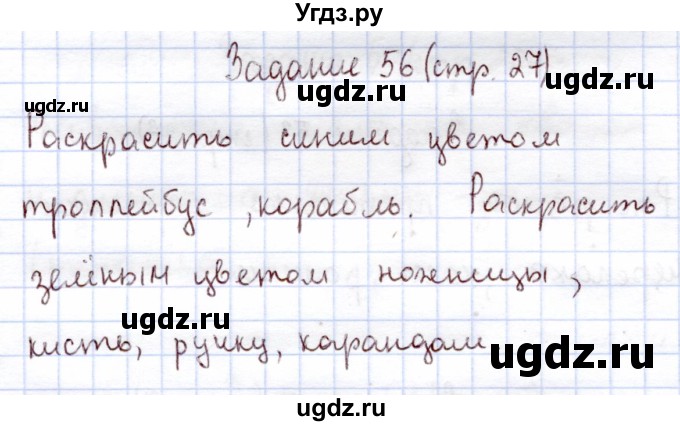 Угдз.ру
Задание 56 (стр. 27)
ugdz.ru ugdz.ru ugdz.ru
Раскрасить синим цветом
троллейбус, корабль. Раскрасить
ugdz.ru ugdz.ru
зелёным цветом ножницы,
ugdz.ru
кисть, ручку, карандаш
ugdz.ru
ugdz.ru